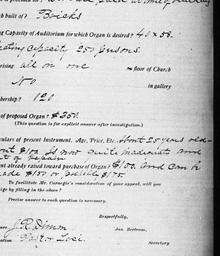 rch built of? Bricks
ng Capacity of Auditorium for which Organ is desired? 40 x 58.
Seating Capacity 250 persons.
rising all on one floor of Church
No in gallery
mbership? 120
of proposed Organ? $350.
(This question is for explicit answer after investigation.)
culars of present Instrument. Age, Price, Etc. About 25 years old
out $100. It not quite inadequate and
out of repair
ent already raised toward purchase of Organ? $100. and can be
made $150 or possibly $175.
To facilitate Mr. Carnegie's consideration of your appeal, will you
ige by filling in the above?
Precise answer to each question is necessary.
Respectfully,
Jas. Bertram,
Secretary
Pastor